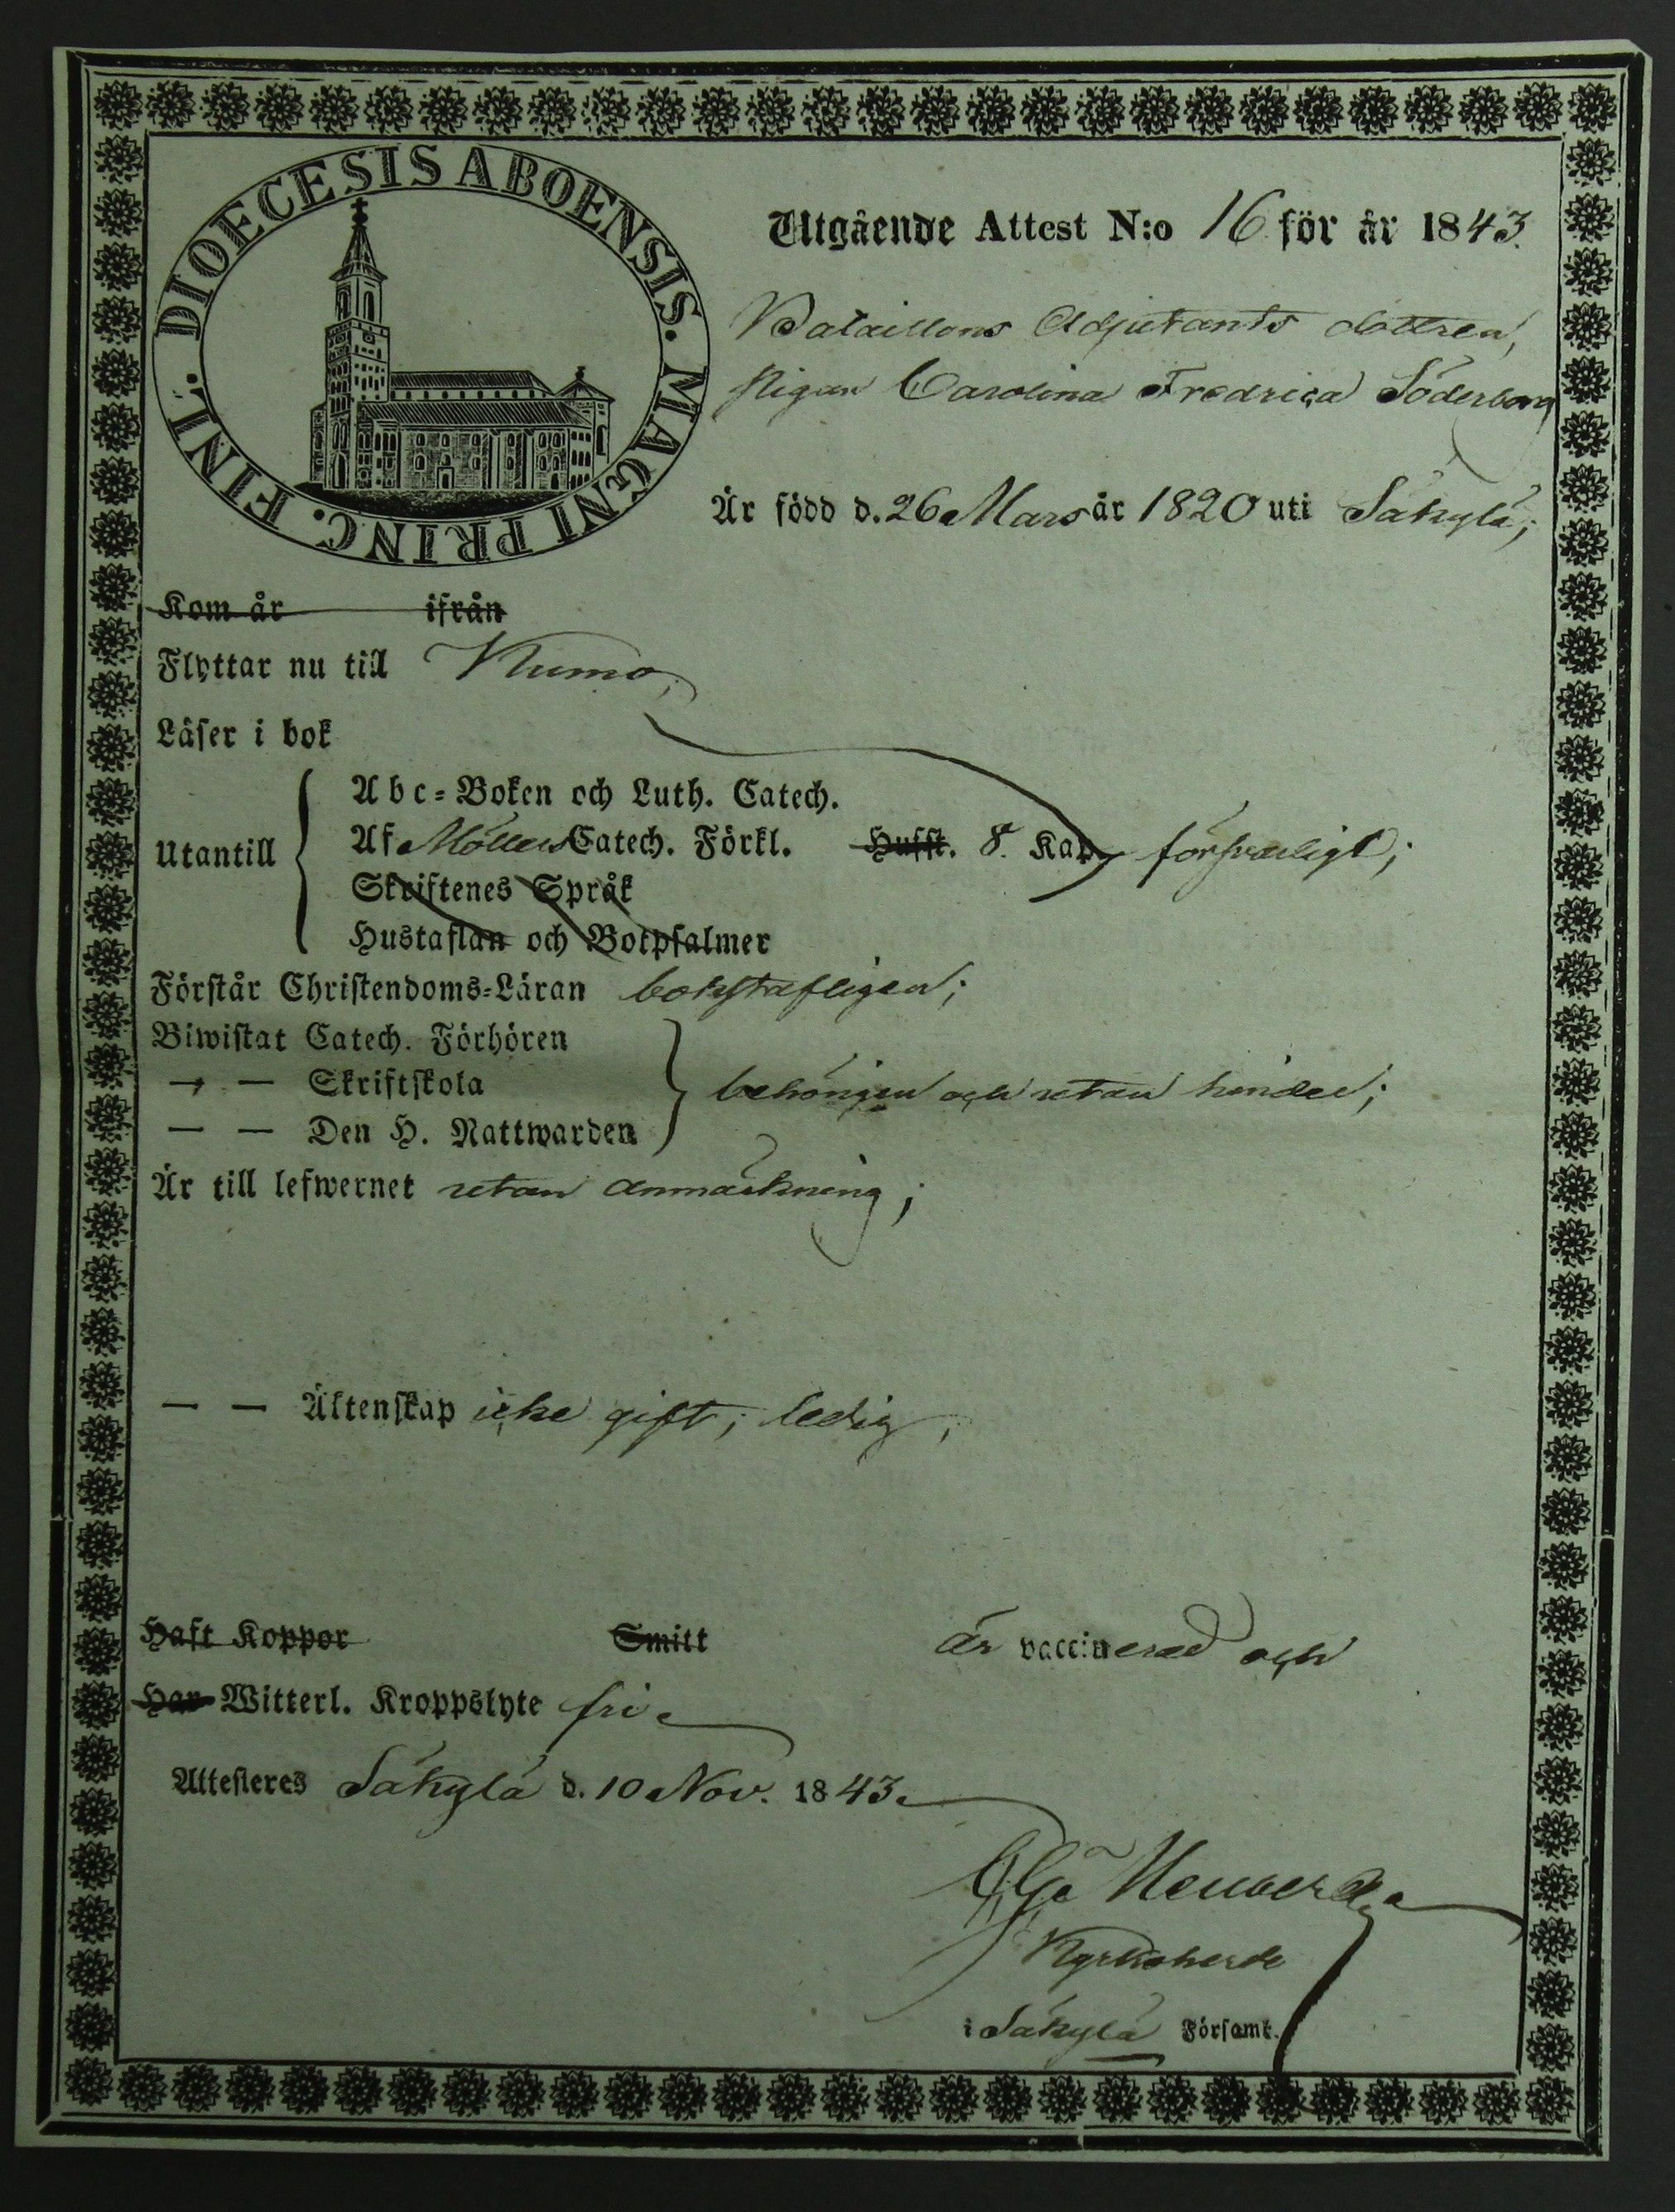 DIOECESIS ABOENSIS. MAGNI PRINC. FINL.
Utgående Attest N:o 16 för år 1843.
Bataillons Adjutants dottren,
Pigan Carolina Fredrica Söderborg
Är född d. 26 Mars år 1820 uti Säkylä;
Kom år ifrån
Flyttar nu till Kumo,
Läser i bok
Utantill
Abc-Boken och Luth. Catech.
Af Möllers Catech. Förkl. Hufst. 8. Kap. försvarligt;
Skriftenes Språk
Hustaflan och Botpsalmer
Förstår Christendoms-Läran bokstafligen;
Biwistat Catech. Förhören
— — Skriftskola behörigen och utan hinder;
— — Den H. Nattwarden
Är till lefwernet utan anmärkning;
— — Äktenskap icke gift; ledig,
Haft Koppor Smitt är vaccinerad och
Har Witterl. Kroppslyte fri
Attesteres Säkylä d. 10 Nov. 1843.
Kyrkoherde
i Säkylä Församl.